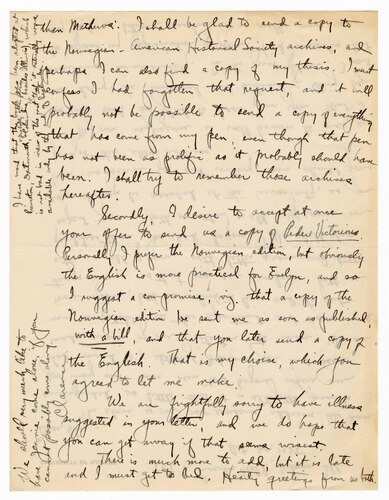 than Mathura. I shall be glad to send a copy to
the Norwegian-American Historical Society archives, and
perhaps I can also find a copy of my thesis. I must
confess I had forgotten that request, and it will
probably not be possible to send a copy of everything
that has come from my pen, even though that pen
has not been as prolific as it probably should have
been. I shall try to remember those archives
hereafter.
Secondly, I desire to accept at once
your offer to send us a copy of Peder Victorious.
Personally I prefer the Norwegian edition, but obviously
the English is more practical for Evelyn, and so
I suggest a compromise, viz, that a copy of the
Norwegian edition be sent me as soon as published,
with a bill, and that you later send a copy of
the English. That is my choice, which you
agreed to let me make.
We are frightfully sorry to have illness
suggested in your letter, and we do hope that
you can get away if that seems wisest.
There is much more to add, but it is late
and I must get to bed. Hearty greetings from us both
We should very much like to
have Jennie come alone, if you
cannot possibly come along.
Clarence